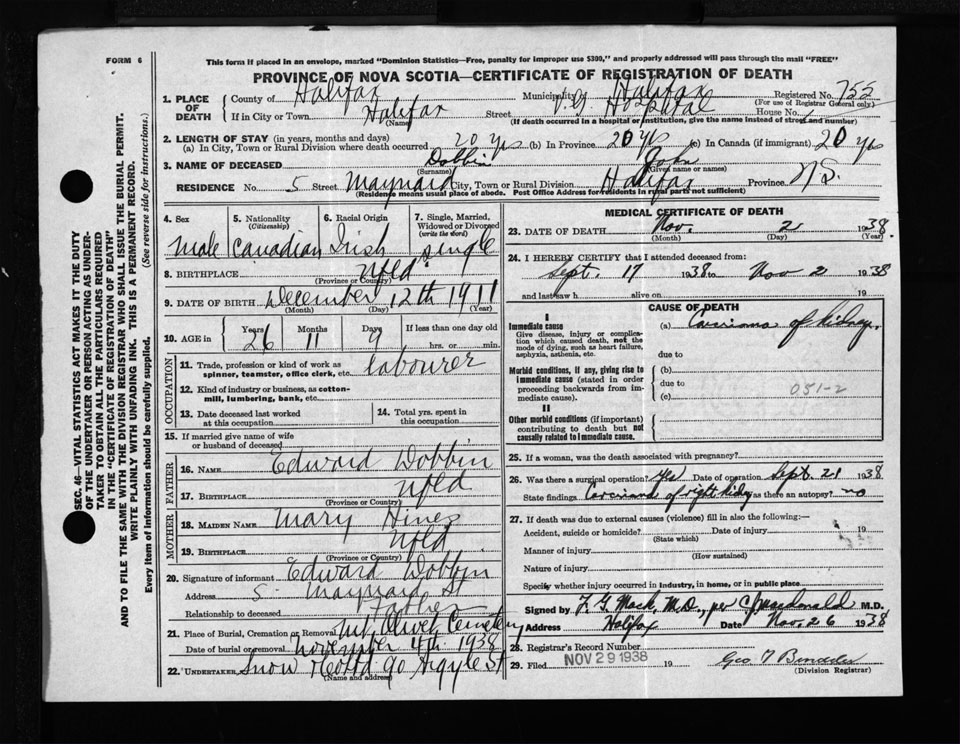 FORM 6
This form if placed in an envelope, marked "Dominion Statistics—Free, penalty for improper use $300," and properly addressed will pass through the mail "FREE"
PROVINCE OF NOVA SCOTIA—CERTIFICATE OF REGISTRATION OF DEATH
SEC. 46—VITAL STATISTICS ACT MAKES IT THE DUTY
OF THE UNDERTAKER OR PERSON ACTING AS UNDER-
TAKER TO OBTAIN ALL THE PARTICULARS REQUIRED
IN THE "CERTIFICATE OF REGISTRATION OF DEATH"
AND TO FILE THE SAME WITH THE DIVISION REGISTRAR WHO SHALL ISSUE THE BURIAL PERMIT.
WRITE PLAINLY WITH UNFADING INK. THIS IS A PERMANENT RECORD.
Every item of Information should be carefully supplied. (See reverse side for instructions.)
1. PLACE OF DEATH County of Halifax Municipality of Halifax Registered No. 755
(For use of Registrar General only)
If in City or Town Halifax Street V. G. Hospital House No.
(Name) (If death occurred in a hospital or institution, give the name instead of street and number)
2. LENGTH OF STAY (in years, months and days)
(a) In City, Town or Rural Division where death occurred 20 yrs (b) In Province 20 yrs (c) In Canada (if immigrant) 20 yrs
3. NAME OF DECEASED Dobbin John
(Surname) (Given name or names)
RESIDENCE No. 5 Street Maynard City, Town or Rural Division Halifax Province N.S.
(Residence means usual place of abode. Post Office Address for residents in rural parts not sufficient)
4. Sex 5. Nationality (Citizenship) 6. Racial Origin 7. Single, Married, Widowed or Divorced (write the word)
Male Canadian Irish Single
8. BIRTHPLACE Nfld
(Province or Country)
9. DATE OF BIRTH December 12th 1911
(Month) (Day) (Year)
10. AGE in Years Months Days If less than one day old
26 11 9 hrs. or min.
OCCUPATION
11. Trade, profession or kind of work as spinner, teamster, office clerk, etc. labourer
12. Kind of industry or business, as cotton-mill, lumbering, bank, etc.
13. Date deceased last worked at this occupation
14. Total yrs. spent in this occupation
15. If married give name of wife or husband of deceased
FATHER
16. NAME Edward Dobbin
17. BIRTHPLACE Nfld
(Province or Country)
MOTHER
18. MAIDEN NAME Mary Hines
19. BIRTHPLACE Nfld
(Province or Country)
20. Signature of informant Edward Dobbin
Address 5 Maynard St
Relationship to deceased Father
21. Place of Burial, Cremation or Removal Mt Olivet Cemetery
Date of burial or removal November 4th 1938
22. UNDERTAKER Snow & Co Ltd 90 Argyle St
(Name and address)
MEDICAL CERTIFICATE OF DEATH
23. DATE OF DEATH Nov. 2 1938
(Month) (Day) (Year)
24. I HEREBY CERTIFY that I attended deceased from:
Sept. 17 1938 to Nov 2 1938
and last saw h alive on 19
CAUSE OF DEATH
I
Immediate cause (a) Carcinoma of kidney.
Give disease, injury or complication which caused death, not the mode of dying, such as heart failure, asphyxia, asthenia, etc.
due to
Morbid conditions, if any, giving rise to immediate cause (stated in order proceeding backwards from immediate cause).
(b)
due to 051-2
(c)
II
Other morbid conditions (if important) contributing to death but not causally related to immediate cause.
25. If a woman, was the death associated with pregnancy?
26. Was there a surgical operation? yes Date of operation Sept. 21 1938
State findings Carcinoma of right kidney Was there an autopsy? no
27. If death was due to external causes (violence) fill in also the following:—
Accident, suicide or homicide? Date of injury 19
(State which)
Manner of injury
(How sustained)
Nature of injury
Specify whether injury occurred in industry, in home, or in public place
Signed by F. G. Mack, M.D., per M.D.
Address Halifax Date Nov. 26 1938
28. Registrar's Record Number
29. Filed NOV 29 1938 19 Geo
(Division Registrar)